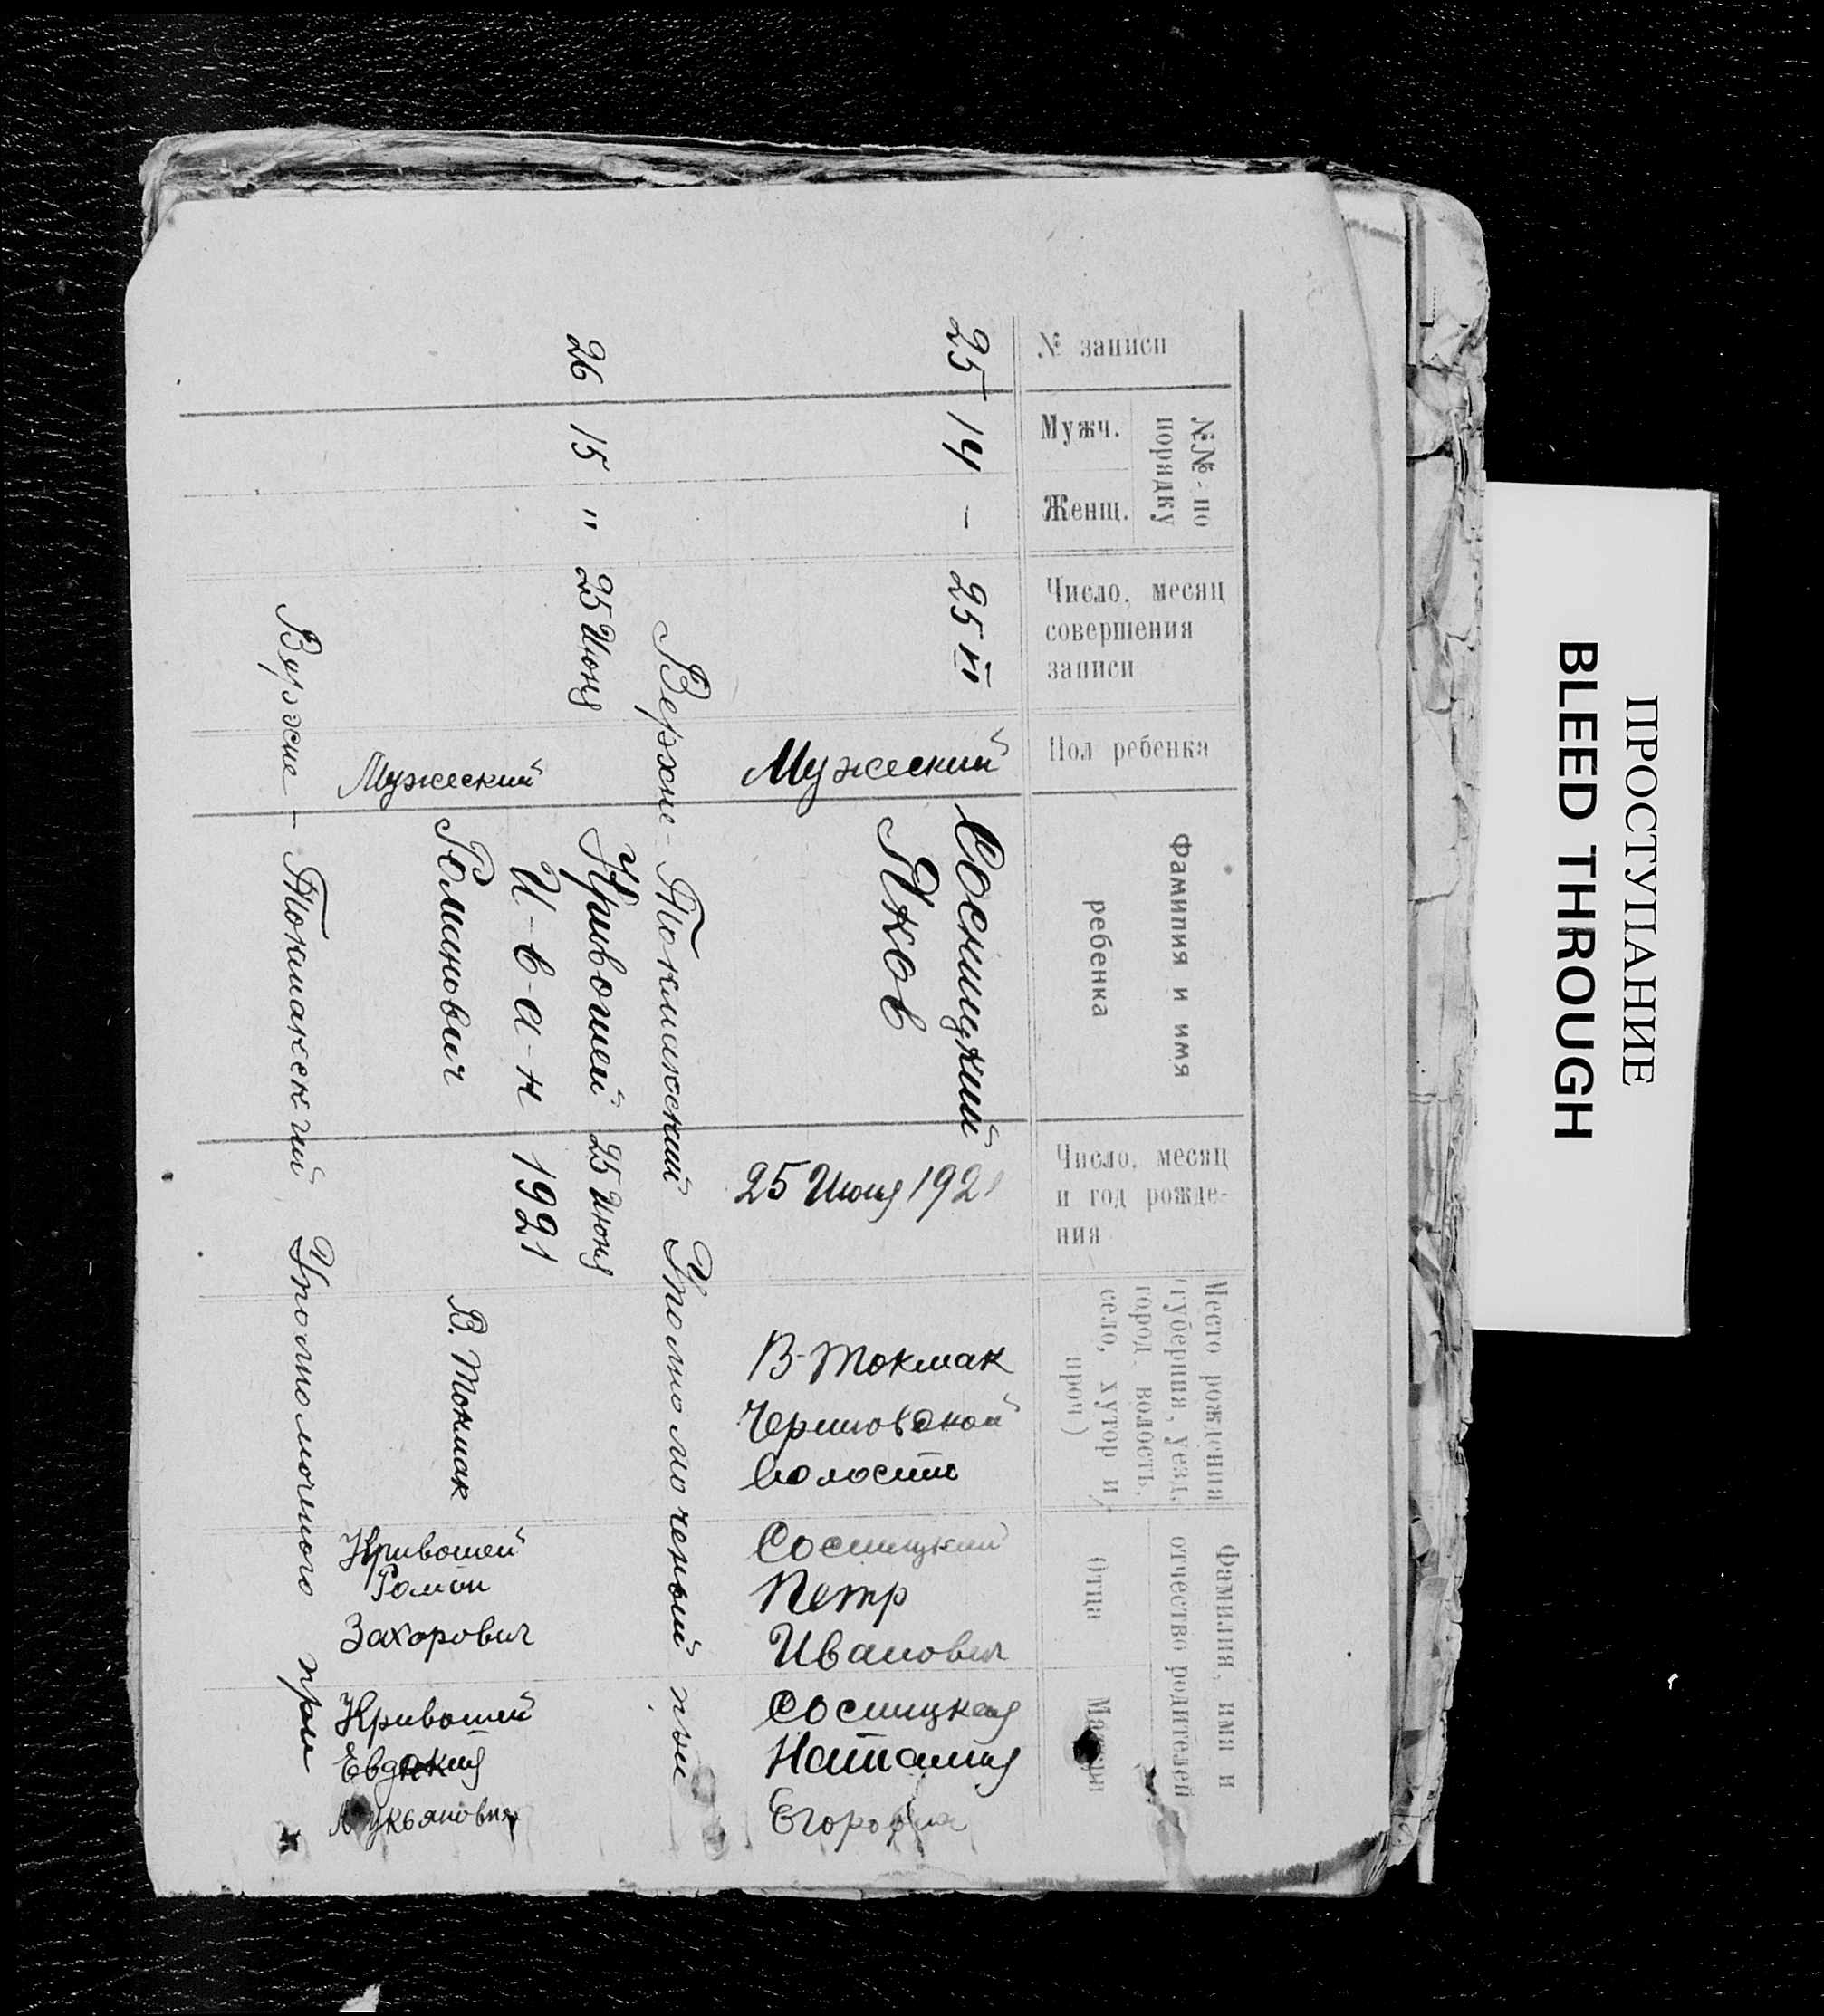 № записи
№№ по
порядку
Мужч.
Женщ.
Число, месяц
совершения
записи
Пол ребенка
Фамилия и имя
ребенка
Число, месяц
и год рожде-
ния
Место рождения
(губерния, уезд,
город, волость,
село, хутор и
проч)
Фамилия, имя и
отчество родителей
Отца
Матери
25
14
-
25 VI
Мужеский
Сосницкий
Яков
25 Июня 1921
В-Токмак
Волости
Сосницкий
Петр
Иванович
Сосницкая
Наталия
Егоровна
Верхне-Токмакский Уполномоченый
26
15
"
25 Июня
Мужеский
Кривошей
И-в-а-н
Романович
25 Июня
1921
В. Токмак
Кривошей
Роман
Захорович
Кривошей
Евдокия
Лукьяновна
Верхне-Токмакский Уполномочного при
ПРОСТУПАНИЕ
BLEED THROUGH